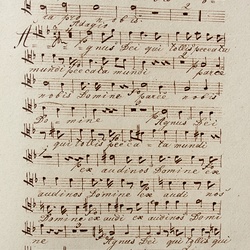 ca pro nobis.
Adagio
Agnus Dei qui tollis peccata
mundi peccata mundi parce
nobis Domine parce nobis
Domine Agnus Dei
qui tollis peccata mundi
ex audi nos Domine ex
audi nos Domine ex audi nos
Domine ex audi ex audi nos Domi
ne Agnus Dei qui tollis qui